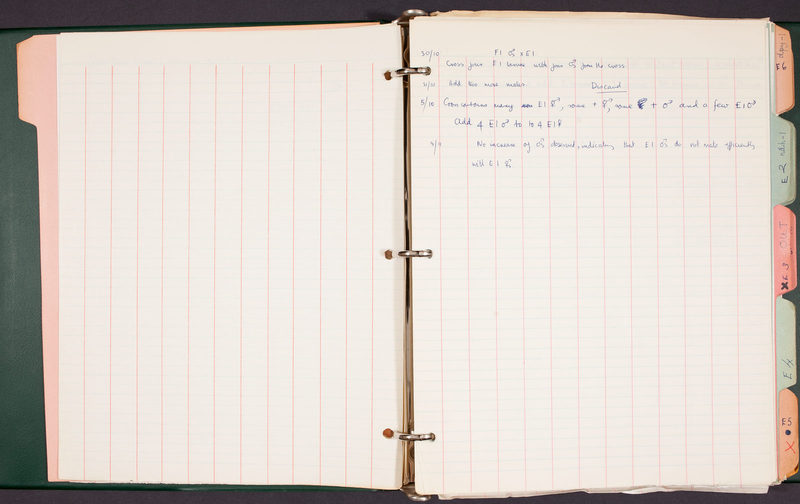 30/10 F1 ♂ x E1
Cross four F1 with four ♂ from the cross
Add two more males Discard
5/10 Cross contains many E1 ⚥, some + ⚥, some + ♂ and a few E1 ♂
Add 4 E1 ♂ to 4 E1 ⚥
No increase of ♂ observed, indicating that E1 ♂ do not mate efficiently
with E1 ⚥
E6 dpy-1
E2 notch-1
E3 OUT
E
E5
X